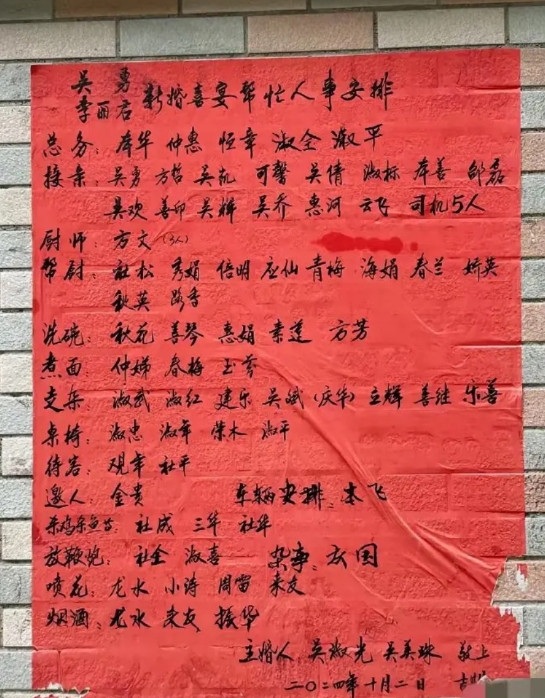 吴勇
李丽君 新婚喜宴帮忙人事安排
总务：库华 仲惠 恒章 淑全 淑平
接亲：吴勇 方哲 吴凯 可馨 吴倩 淑标 库善 邹磊
吴欢 善卯 吴辉 吴乔 惠河 云飞 司机5人
厨师：方文（3人）
帮厨：社松 秀娟 信明 应仙 青梅 海娟 春兰 娇英
秋英
洗碗：秋花 善琴 惠娟 素莲 方芳
煮面：仲娣 春梅 玉芬
支架：淑武 淑红 建乐 吴斌（庆华） 立辉 善继 乐善
桌椅：淑忠 淑年 保木 淑平
待客：观年 社平
邀人：金贵 车辆安排：本飞
杀鸡杀鱼等：社成 三华 社华
放鞭炮：社全 淑喜 杂事：友国
喷花：龙水 小诗 周雷 来友
烟酒：龙水 来友 振华
主婚人 吴淑光 吴美珠 敬上
二〇二四年十月二日